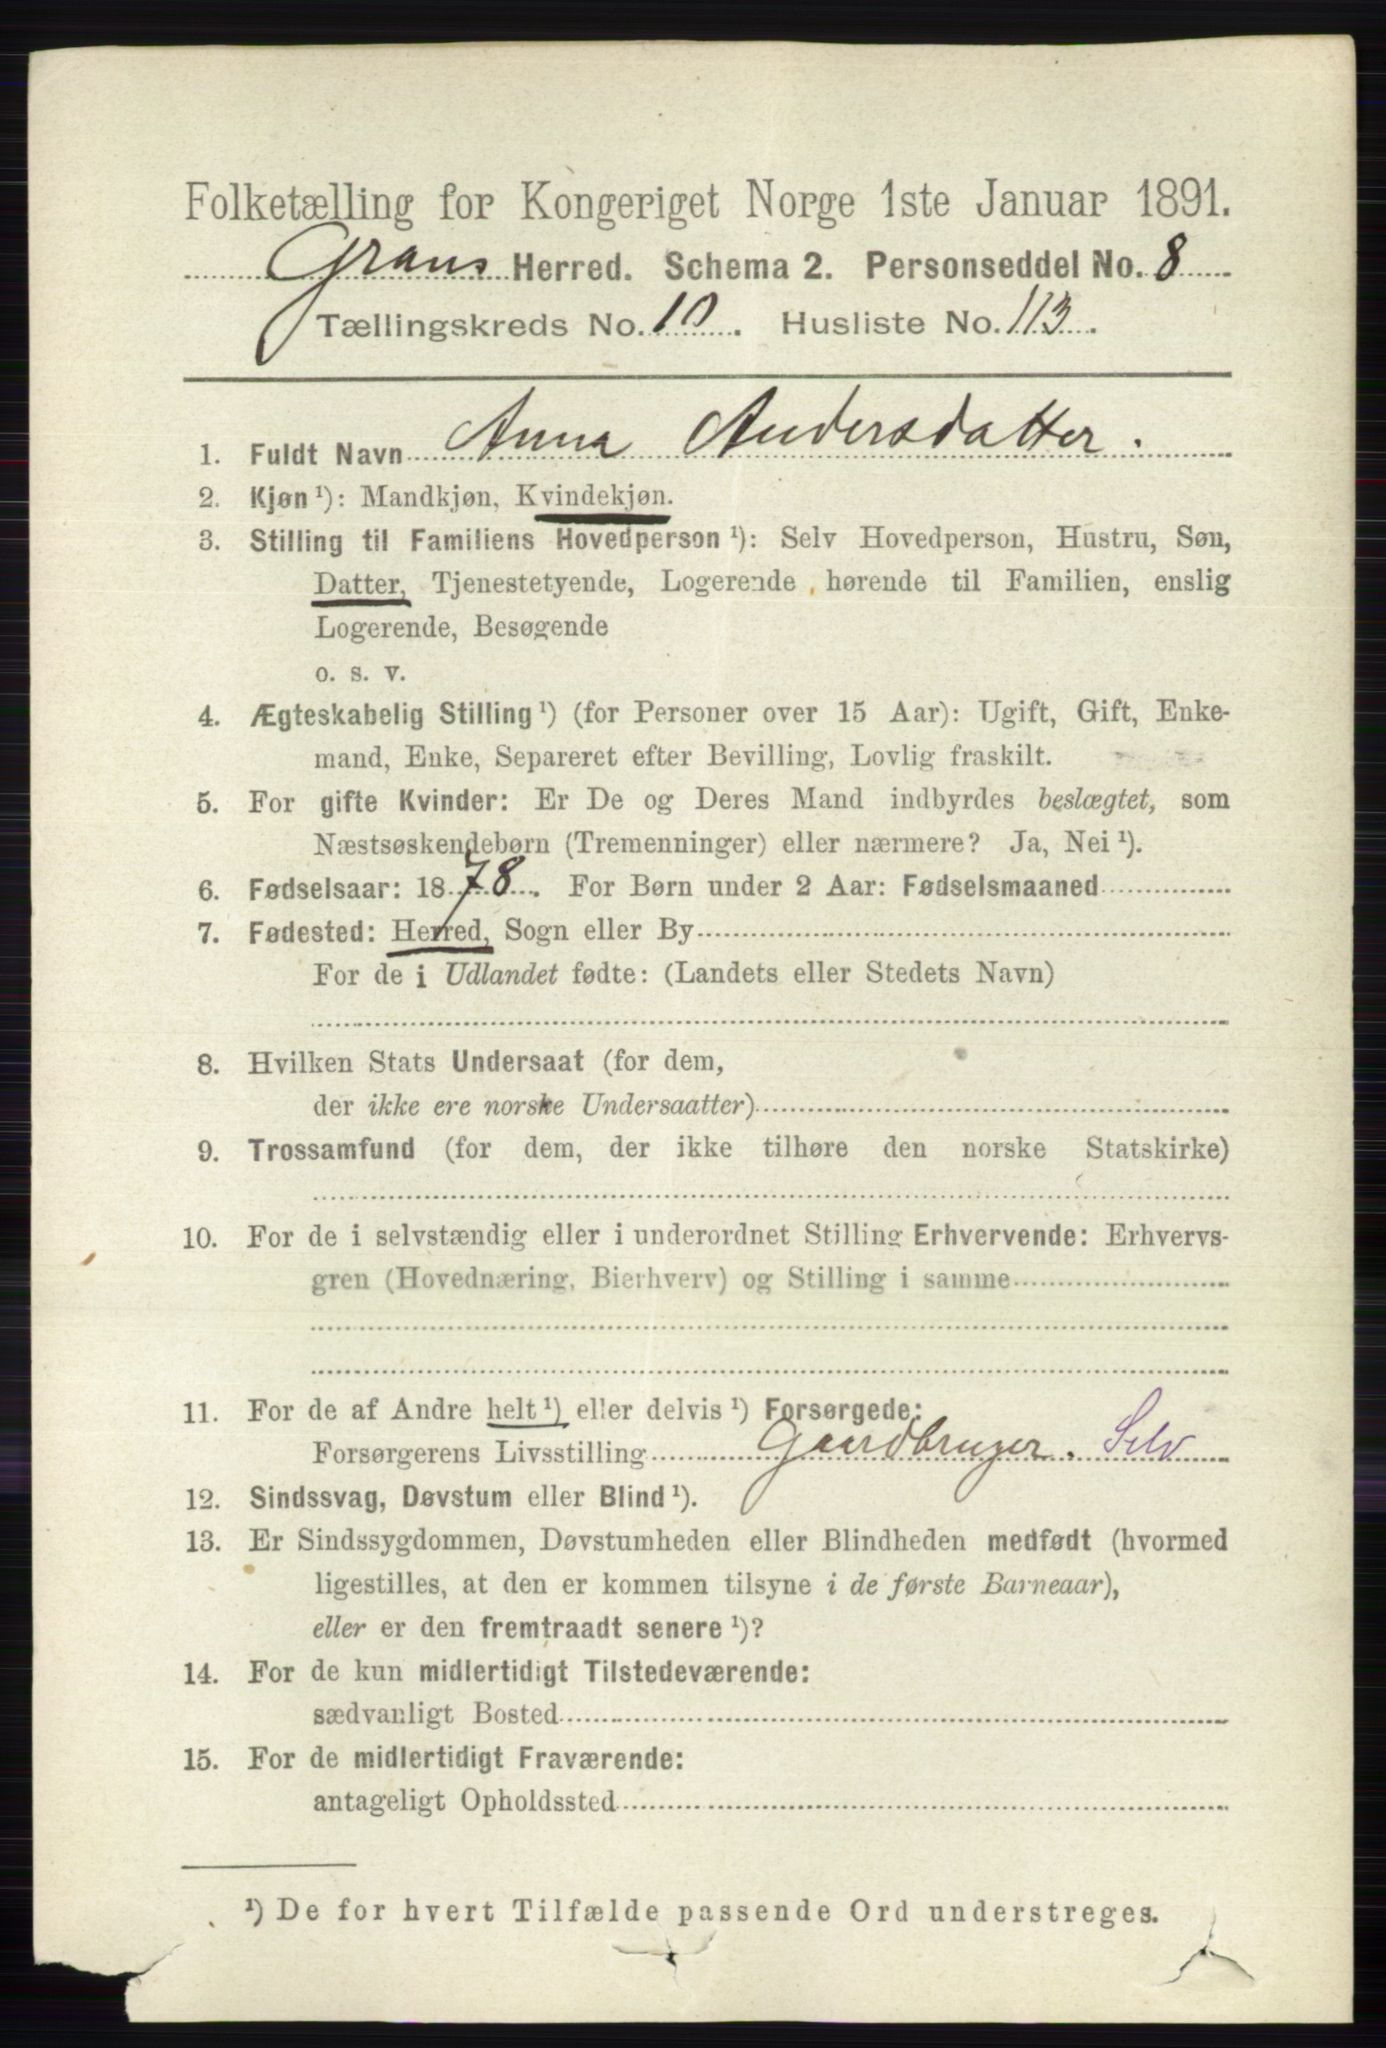 Folketælling for Kongeriget Norge 1ste Januar 1891.
Grans Herred. Schema 2. Personseddel No. 8
Tællingskreds No. 10. Husliste No. 113.
1. Fuldt Navn Anna Andersdatter.
2. Kjøn ¹): Mandkjøn, Kvindekjøn.
3. Stilling til Familiens Hovedperson ¹): Selv Hovedperson, Hustru, Søn,
Datter, Tjenestetyende, Logerende hørende til Familien, enslig
Logerende, Besøgende
o. s. v.
4. Ægteskabelig Stilling ¹) (for Personer over 15 Aar): Ugift, Gift, Enke-
mand, Enke, Separeret efter Bevilling, Lovlig fraskilt.
5. For gifte Kvinder: Er De og Deres Mand indbyrdes beslægtet, som
Næstsøskendebørn (Tremenninger) eller nærmere? Ja, Nei ¹).
6. Fødselsaar: 1878. For Børn under 2 Aar: Fødselsmaaned
7. Fødested: Herred, Sogn eller By
For de i Udlandet fødte: (Landets eller Stedets Navn)
8. Hvilken Stats Undersaat (for dem,
der ikke ere norske Undersaatter)
9. Trossamfund (for dem, der ikke tilhøre den norske Statskirke)
10. For de i selvstændig eller i underordnet Stilling Erhvervende: Erhvervs-
gren (Hovednæring, Bierhverv) og Stilling i samme
11. For de af Andre helt ¹) eller delvis ¹) Forsørgede:
Forsørgerens Livsstilling Gaardbruger. Selv
12. Sindssvag, Døvstum eller Blind ¹).
13. Er Sindssygdommen, Døvstumheden eller Blindheden medfødt (hvormed
ligestilles, at den er kommen tilsyne i de første Barneaar),
eller er den fremtraadt senere ¹)?
14. For de kun midlertidigt Tilstedeværende:
sædvanligt Bosted
15. For de midlertidigt Fraværende:
antageligt Opholdssted
¹) De for hvert Tilfælde passende Ord understreges.